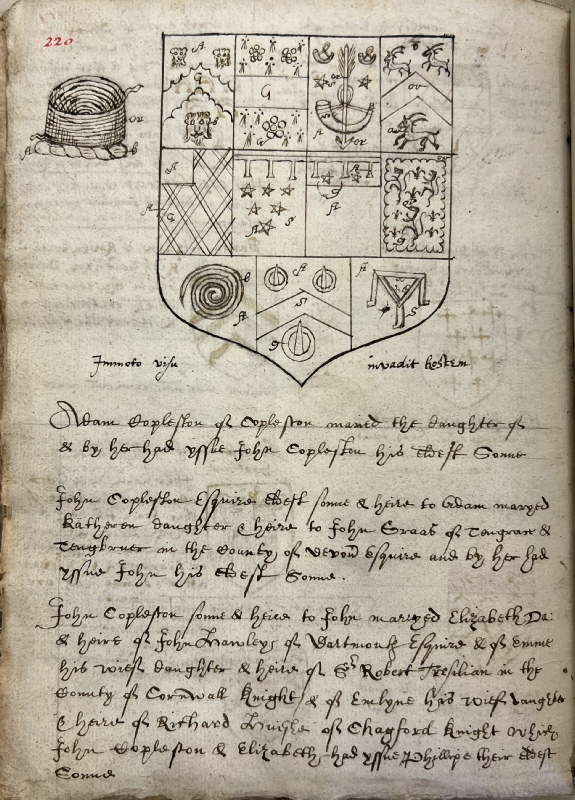 220
Immoto visu invadit hostem
Adam Copleston of Copleston maried the daughter of
& by her had yssue John Copleston his eldest Sonne
John Copleston Esquire eldest sonne & heire to Adam maryed
Katheren daughter & heire to John Graas of Tengrace &
in the County of Devon Esquire and by her had
yssue John his eldest Sonne.
John Copleston sonne & heire to John maryed Elizabeth Da:
& heire of John Hawley of Dartmouth Esquire & of Emme
his wief daughter & heire of Sr Robert Tresilian in the
County of Cornwall Knight & of Emlyne his wief daughter
& heire of Richard of Chagford Knight which
John Copleston & Elizabeth had yssue Phillipe their eldest
Sonne